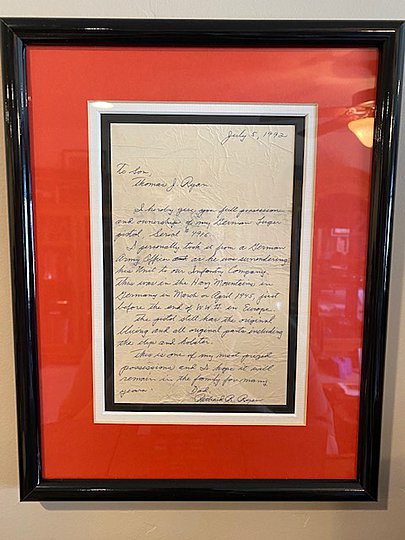 July 5, 1992
To Son,
Thomas J. Ryan
I hereby give you full possession
and ownership of my German Luger
pistol. Serial # 4916.
I personally took it from a German
Army Officer as he was surrendering
his Unit to our Infantry Company.
This was in the Harz Mountains in
Germany in March or April 1945 just
before the end of WW II in Europe.
The pistol still has the original
bluing and all original parts including
the clip and holster.
This is one of my most prized
possessions and I hope it will
remain in the family for many
years.
Dad
Richard R. Ryan